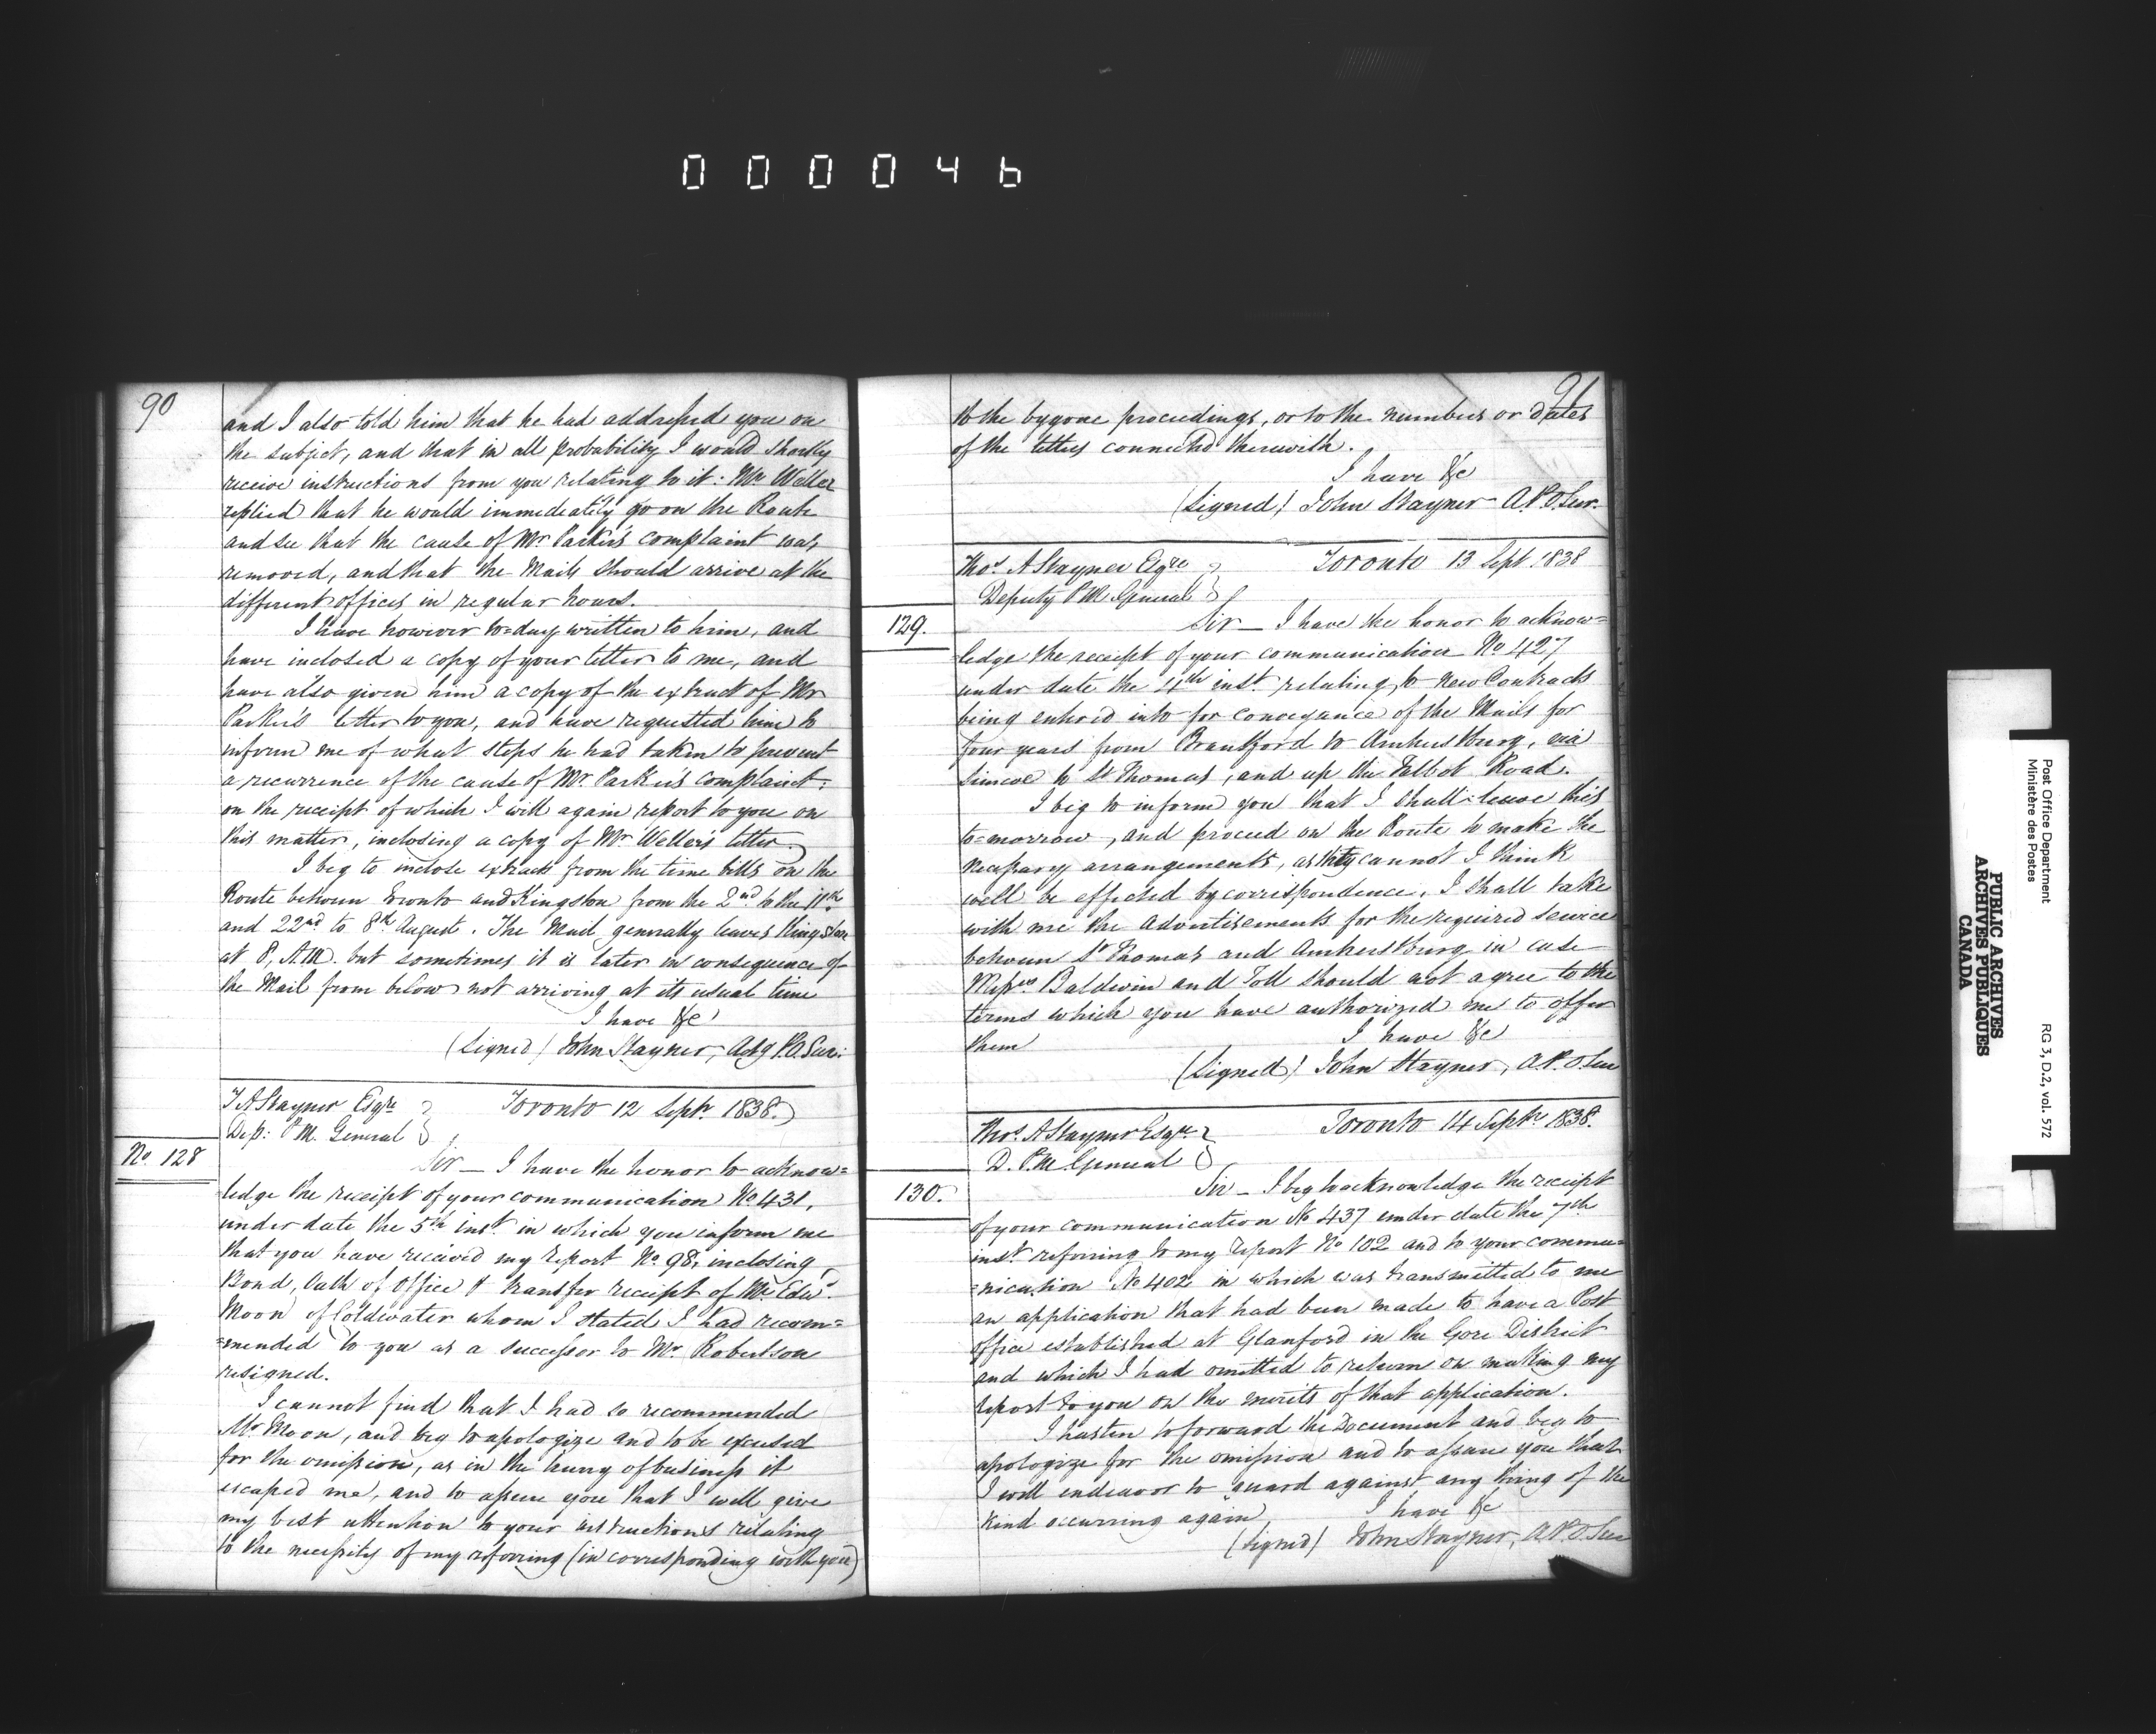 000046
90
and I also told him that he had addressed you on
the subject, and that in all probability I would shortly
receive instructions from you relating to it: Mr Weller
replied that he would immediately go on the Route
and see that the cause of Mr Parker's complaint was
removed, and that the Mails should arrive at the
different offices in regular hours.
I have however to=day written to him, and
have inclosed a copy of your letter to me, and
have also given him a copy of the extract of Mr
Parker's letter to you, and have requested him to
inform me of what steps he had taken to prevent
a recurrence of the cause of Mr. Parker's complaint:
on the receipt of which I will again report to you on
this matter, inclosing a copy of Mr Weller's letter.
I beg to inclose extracts from the time bills on the
Route between Toronto and Kingston from the 2nd to the 11th
and 22nd to 8th August. The Mail generally leaves Kingston
at 8, A.M. but sometimes it is later in consequence of
the Mail from below not arriving at its usual time
I have &c
(Signed) John Stayner, Actg P.O. Sur:
T A Stayner Esqre
Toronto 12 Septr 1838.
Dep: P.M. General
No. 128
Sir _ I have the honor to acknow=
ledge the receipt of your communication No. 431,
under date the 5th inst. in which you inform me
that you have received my report No. 98, inclosing
Bond, Oath of Office & transfer receipt of Mr Edwd.
Moon of Coldwater whom I stated I had recom=
=mended to you as a successor to Mr. Robertson
resigned.
I cannot find that I had so recommended
Mr. Moon, and beg to apologize and to be excused
for the omission, as in the hurry of business it
escaped me, and to assure you that I will give
my best attention to your instructions relating
to the necessity of my referring (in corresponding with you)
91
to the bygone proceedings, or to the numbers or dates
of the letters connected therewith.
I have &c
(Signed) John Stayner A.P.O. Sur.
Thos. A Stayner Esqre
Toronto 13 Sept 1838
Deputy P M General
129.
Sir _ I have the honor to acknow=
ledge the receipt of your communication No 427
under date the 4th inst. relating to New Contracts
being entered into for conveyance of the Mails for
four years from Brantford to Amherstburg, via
Simcoe to St Thomas, and up the Talbot Road.
I beg to inform you that I shall leave this
to=morrow, and proceed on the Route to make the
necessary arrangements, as they cannot I think
well be effected by correspondence, I shall take
with me the Advertisements for the required service
between St Thomas and Amherstburg in case
Messrs Baldwin and Toll should not agree to the
terms which you have authorized me to offer
them
I have &c
(Signed) John Stayner, A.P.O. Sur
Thos. A Stayner Esqre
Toronto 14 Septr 1838.
D. P.M. General
130.
Sir _ I beg to acknowledge the receipt
of your communication No 437 under date the 7th
inst. referring to my report No 102 and to your commu=
=nication No 402 in which was transmitted to me
an application that had been made to have a Post
office established at Glanford in the Gore District
and which I had omitted to return on making my
report to you on the merits of that application.
I hasten to forward the Document and beg to
apologize for the omission and to assure you that
I will endeavor to guard against any thing of the
kind occurring again
I have &c
(Signed) John Stayner, A.P.O. Sur
Post Office Department
Ministère des Postes
RG 3, D.2, vol. 572
PUBLIC ARCHIVES
ARCHIVES PUBLIQUES
CANADA